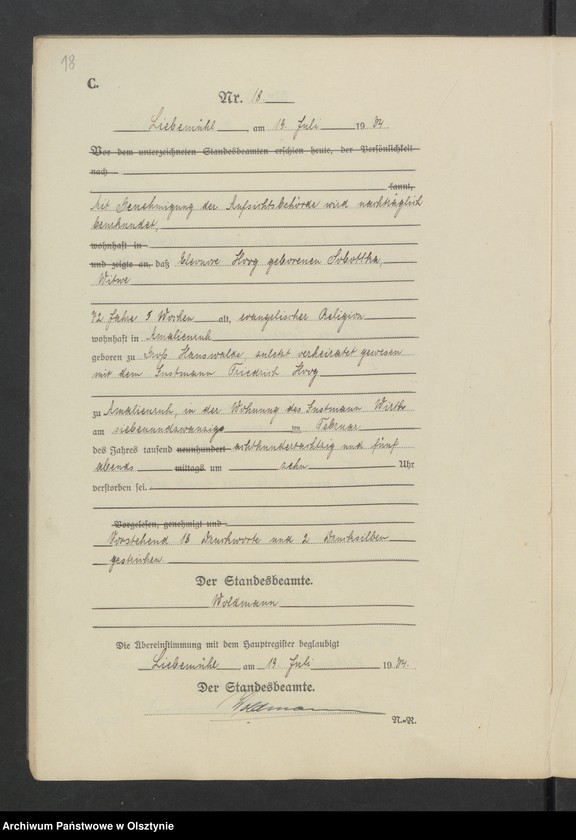 18
C.
Nr. 18
Liebemühl, am 19. Juli 1904
Vor dem unterzeichneten Standesbeamten erschien heute, der Persönlichkeit
nach
kannt,
Mit Genehmigung der Aufsichtsbehörde wird nachträglich
beurkundet,
wohnhaft in
und zeigte an, daß Eleonore Hoog geborenen Sobottka,
Witwe
72 Jahre 3 Wochen alt, evangelischer Religion
wohnhaft in Amalienruh
geboren zu Groß Hanswalde, zuletzt verheiratet gewesen
mit dem Instmann Friedrich Hoog
zu Amalienruh, in der Wohnung des Instmann Wirth
am siebenundzwanzig im Februar
des Jahres tausend neunhundert achthundertachtzig und fünf
abends mittags um zehn Uhr
verstorben sei.
Vorgelesen, genehmigt und
Vorstehend 18 Druckworte und 2 Drucksilben
gestrichen
Der Standesbeamte.
Woldmann
Die Übereinstimmung mit dem Hauptregister beglaubigt
Liebemühl am 19. Juli 1904.
Der Standesbeamte.
Woldmann
Archiwum Państwowe w Olsztynie